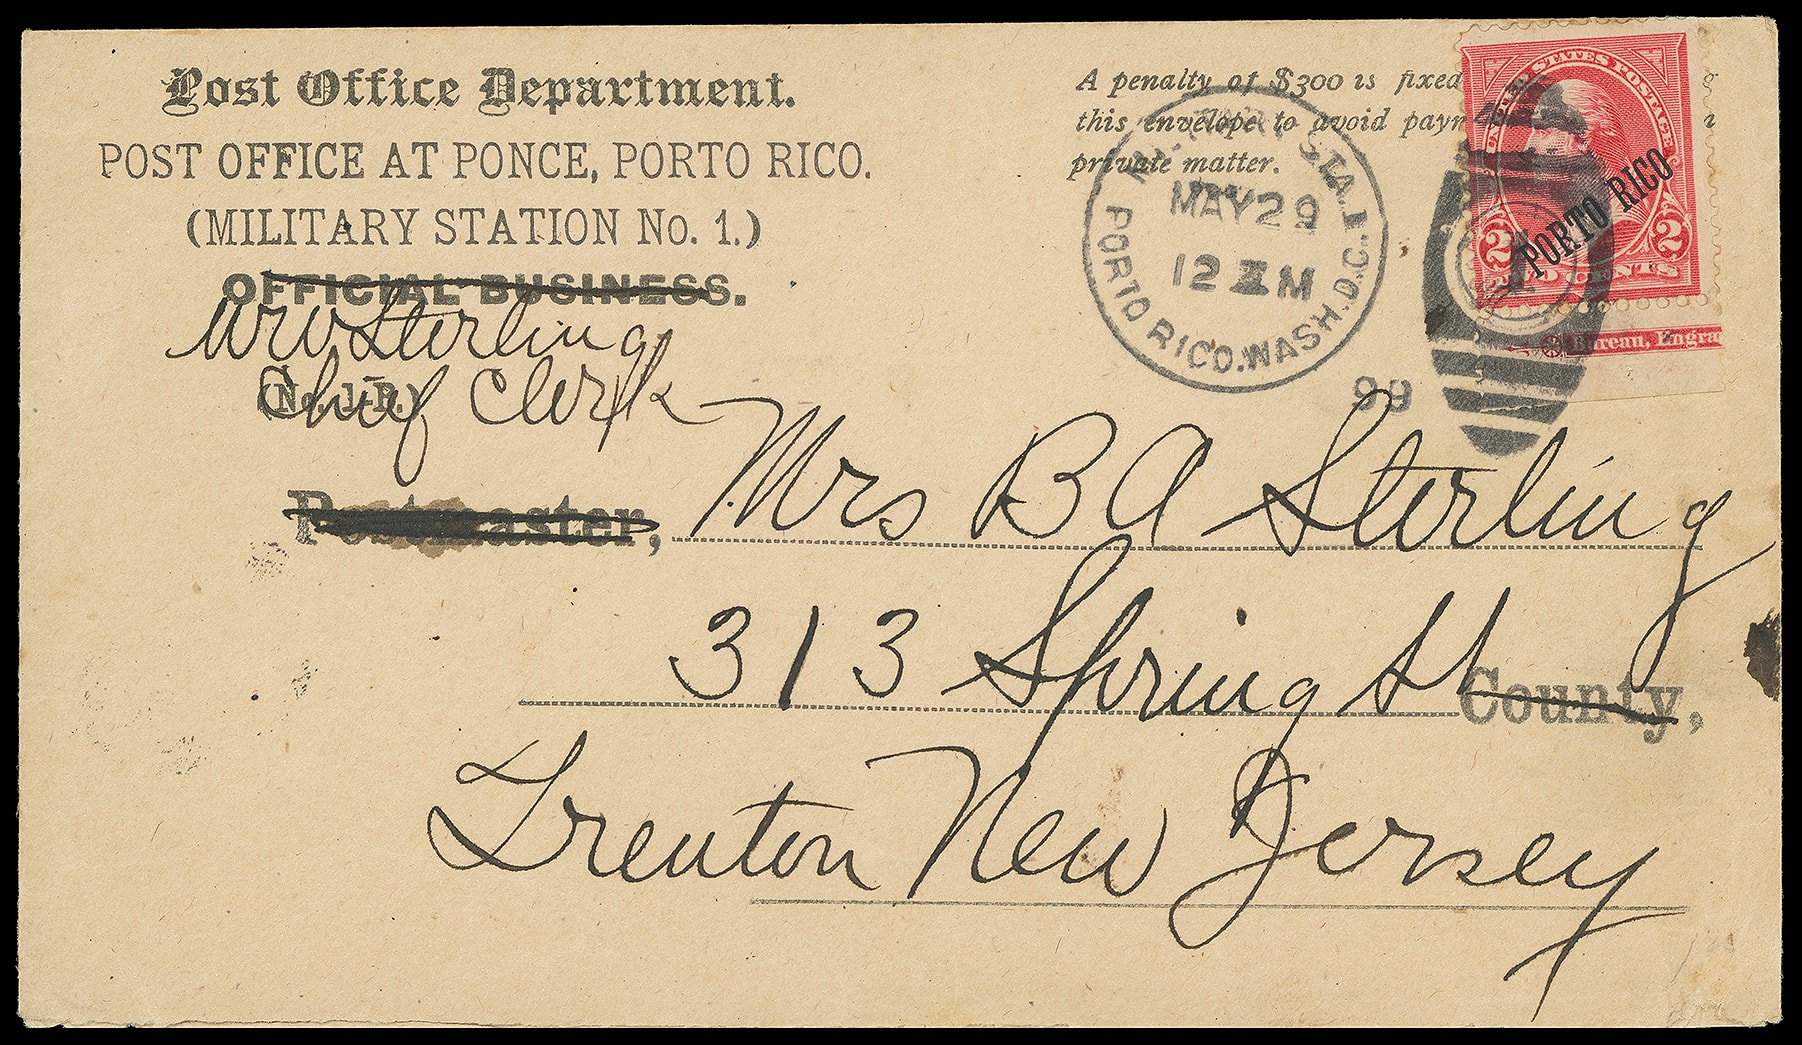 Post Office Department.
POST OFFICE AT PONCE, PORTO RICO.
(MILITARY STATION No. 1.)
OFFICIAL BUSINESS.
Sterling
Chief Clerk
(No. 1-P.)
A penalty of $300 is fixed
this envelope to avoid paym
private matter.
STA. 1.
PORTO RICO. WASH. D.C.
MAY 29
12 M
99
UNITED STATES POSTAGE
PORTO RICO
2 2
CENTS
Bureau, Engra
Postmaster, Mrs B A Sterling
313 Spring St County,
Trenton New Jersey